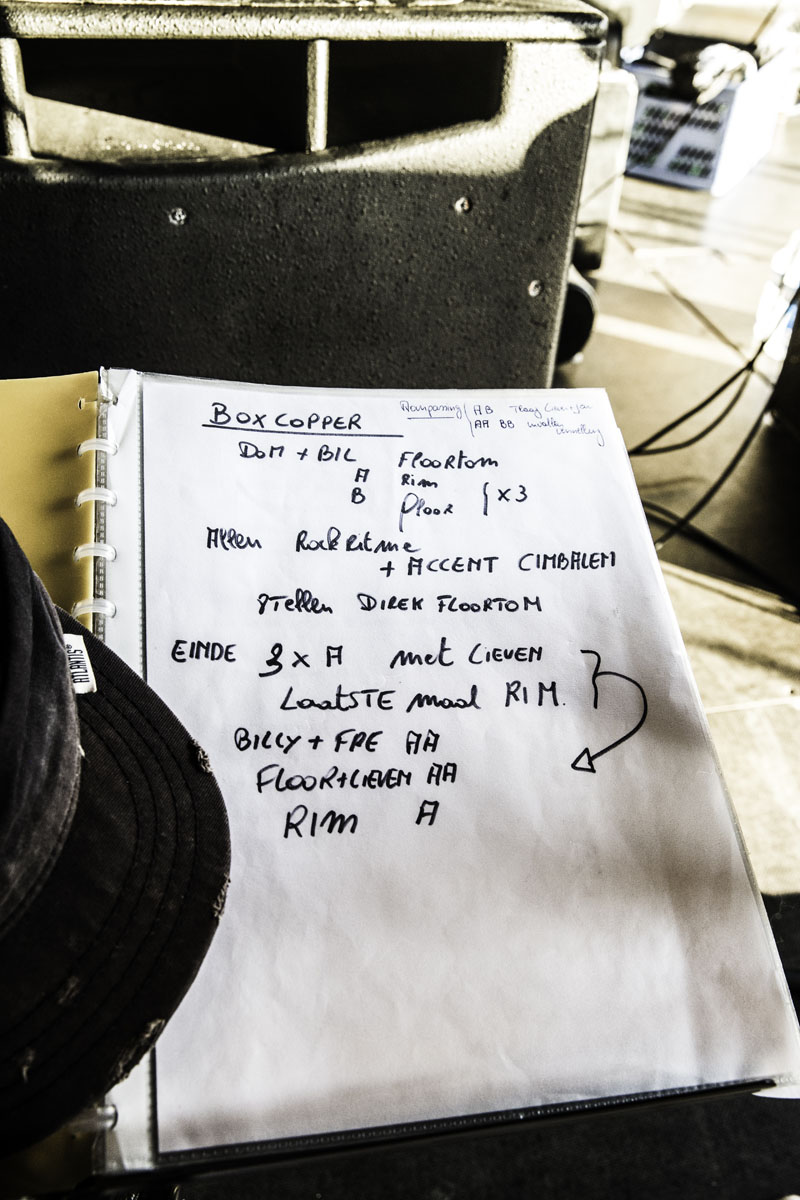 BOXCOPPER
Aanpassing AB Traag
AA BB invallen
DOM + BIL FLOORTOM
A Rim
B Floor } x3
Allen Rock Ritme
+ ACCENT CIMBALEM
Stellen DIREK FLOORTOM
EINDE 3 x A met LIEVEN
LaatSTE maal RIM.
BILLY + FRE AA
FLOOR+LIEVEN AA
RIM A
ATLANTIS